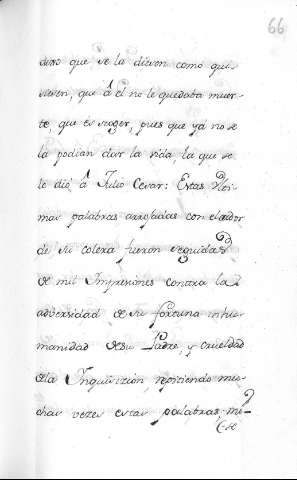 66
dixo que se la diesen como qui-
siesen, que â el no le quedaba muer-
te, que escoger, pues que yá no se
la podian dar la vida, la que se
le dió â Julio Cesar: Estas
mas palabras arrojadas con el ardor
de su colera fueron seguidas
de mil Impresiones contra la
adversidad de su fortuna inhu-
manidad de su Padre, y crueldad
de la Inquisicion, repitiendo mu-
chas vezes estas palabras, mi-